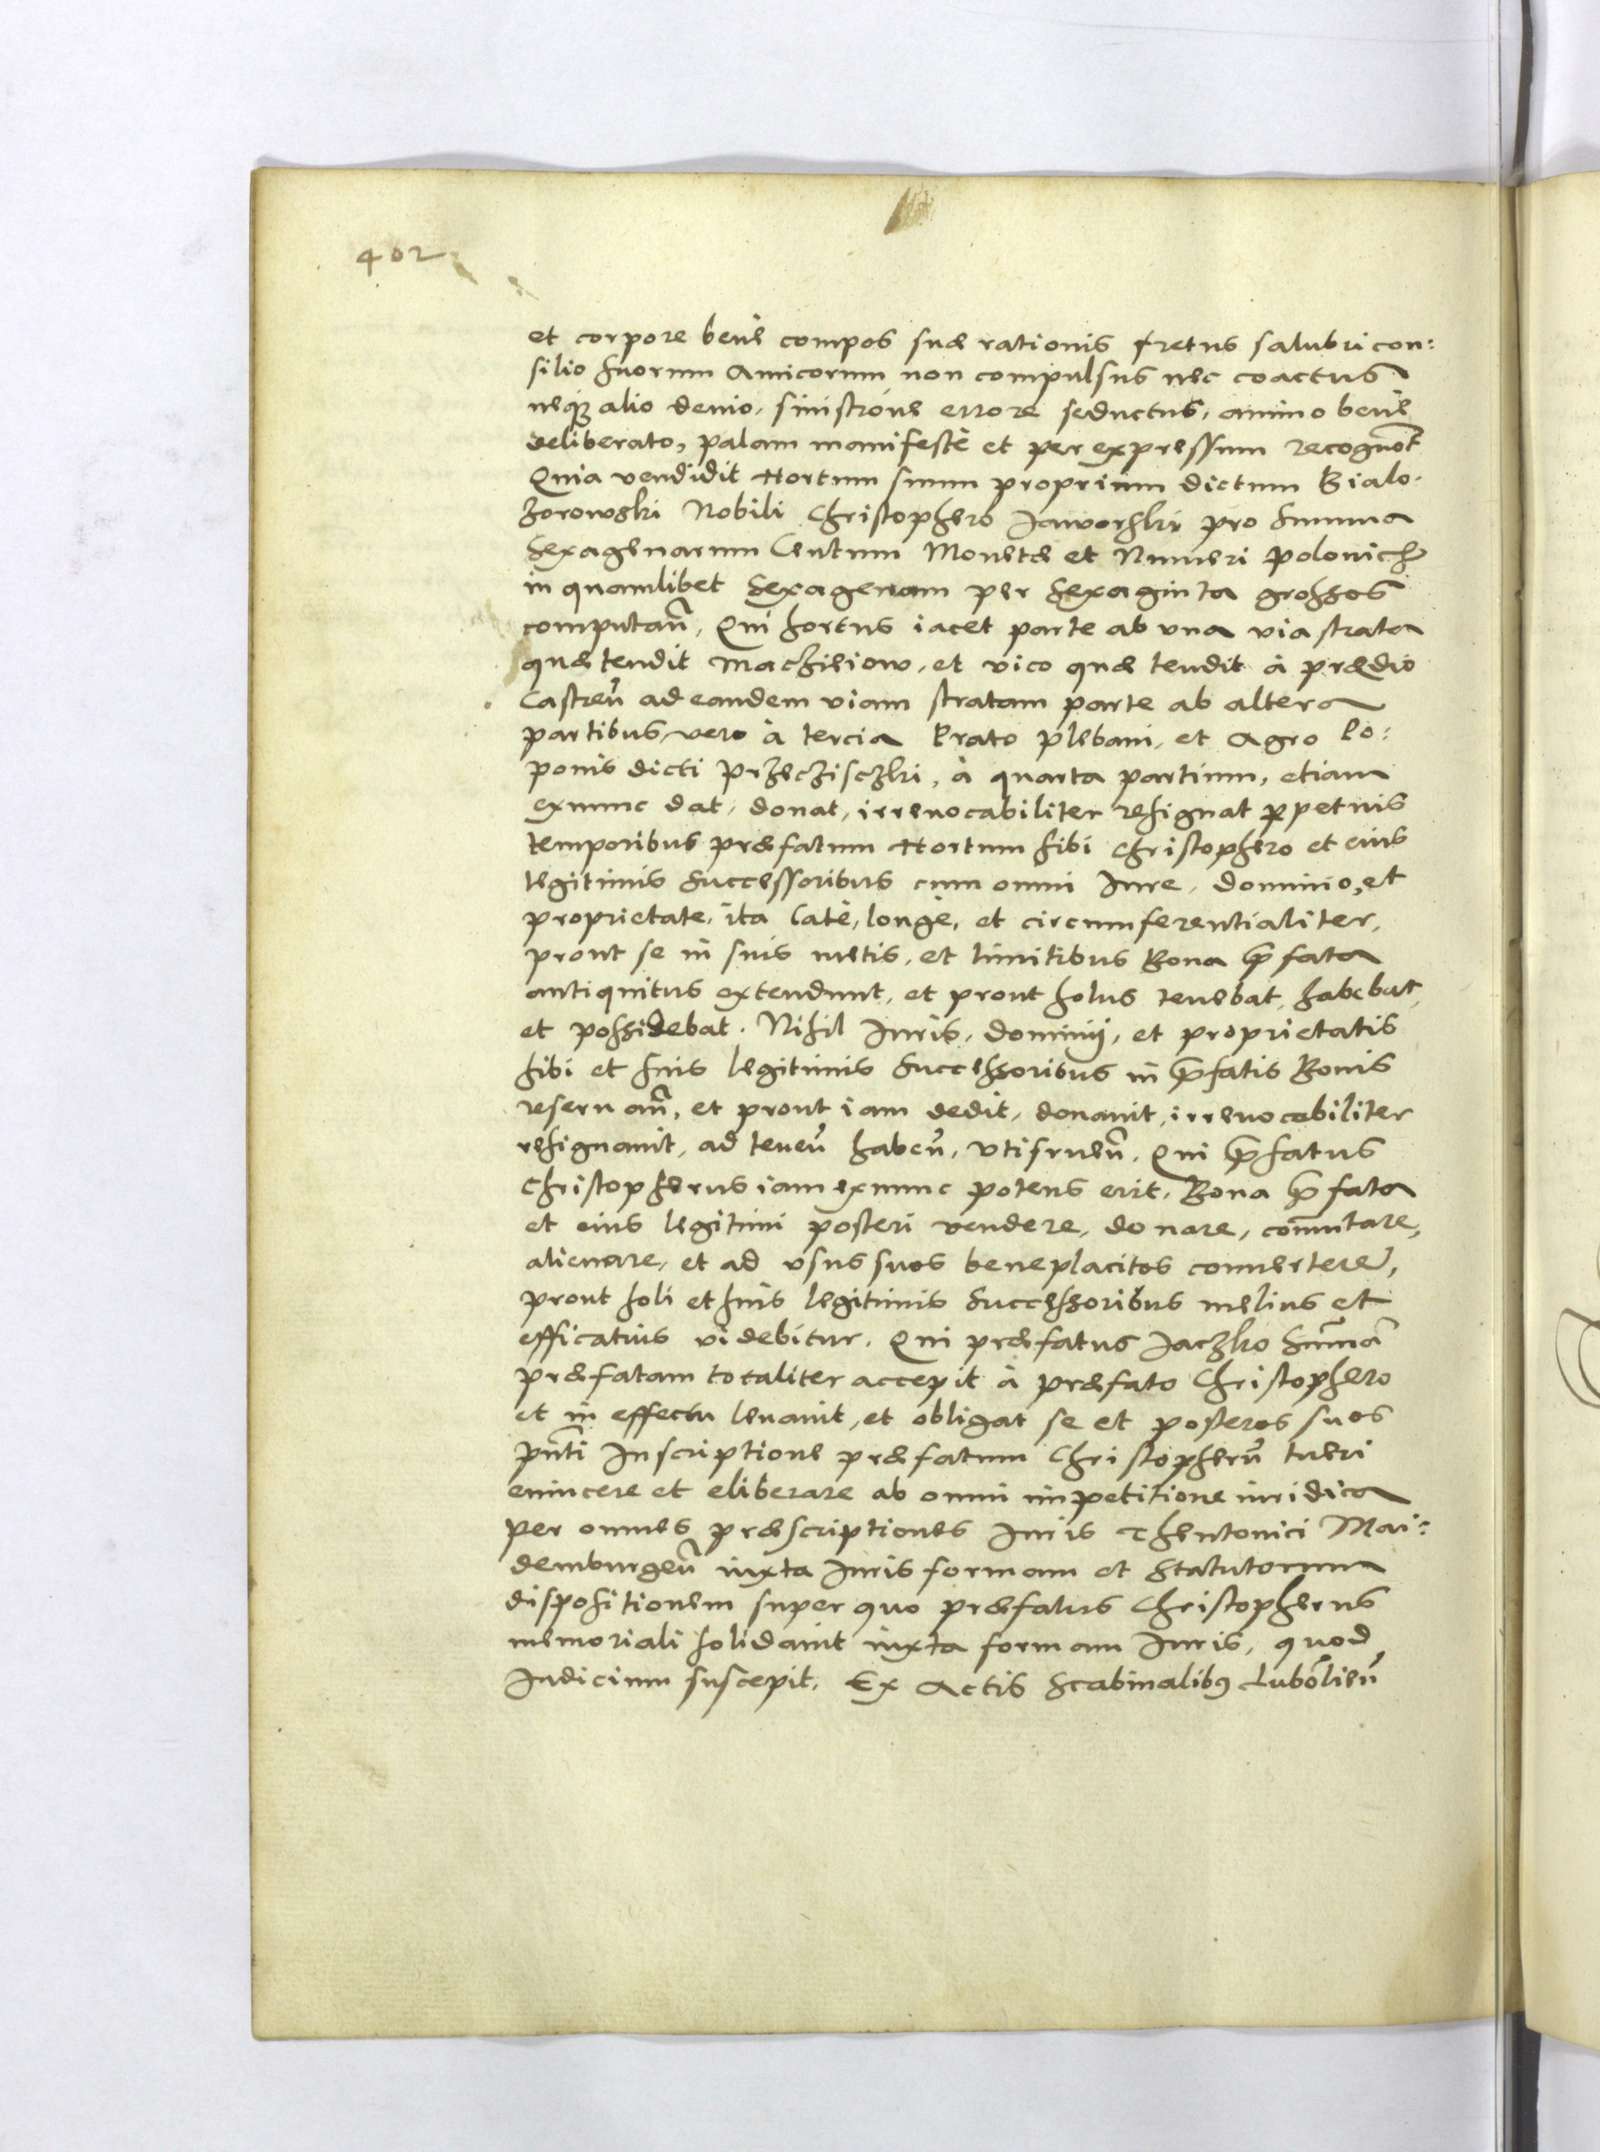 402
et corpore benè compos suæ rationis fretus salubri con:
silio suorum Amicorum non compulsus nec coactus
neq3 alio deuio, sinistròue errore seductus, animo benè
deliberato, palam manifestè et per expressum recognoṽt
Quia vendidit Hortum suum proprium dictum Bialo.
zorowski Nobili Christophero Jaworski pro Summa
Sexagenarum Centum Monetæ et Numeri Polonich
in quamlibet Sexagenam per Sexaginta grossos
computañ, Qui hortus iacet parte ab vna via strata
quæ tendit Maczieiow, et vico quæ tendit à prædio
Castreñ ad eandem viam stratam parte ab altera
partibus vero à tercia Prato Plebani, et Agro Po:
ponis dicti Przeczisczki, à quarta partium, etiam
exnunc dat, donat, irreuocabiliter resignat ꝑpetuis
temporibus præfatum Hortum sibi Christophero et eius
legitimis Successoribus cum omni Iure, dominio, et
proprietate, ita latè, longè, et circumferentialiter,
prout se in suis metis, et limitibus Bona p̃fata
antiquitus extendunt, et prout solus tenebat, habebat,
et possidebat. Nihil Iuris, dominij, et proprietatis
sibi et suis legitimis Successoribus in p̃fatis Bonis
reseruañ, et prout iam dedit, donauit, irreuocabiliter
resignauit, ad teneñ habeñ, vtifrueñ, Qui p̃fatus
Christopherus iam exnunc potens erit, Bona p̃fata
et eius legitimi posteri vendere, donare, com̃utare,
alienare, et ad vsus suos beneplacitos conuertere,
prout soli et suis legitimis Successoribus melius et
efficatius videbitur. Qui præfatus Jaczko Sum̃ã
præfatam totaliter accepit à præfato Christophero
et in effectu leuauit, et obligat se et posteros suos
pñti Inscriptione præfatum Christopherũ tueri
euincere et eliberare ab omni impetitione iuridica
per omnes præscriptiones Iuris Theutonici Mai:
demburgeñ iuxta Iuris formam et Statutorum
dispositionem super quo præfatus Christopherus
memoriali solidauit iuxta formam Iuris, quod
Iudicium suscepit. Ex Actis Scabinalibꝰ Lubomlieñ